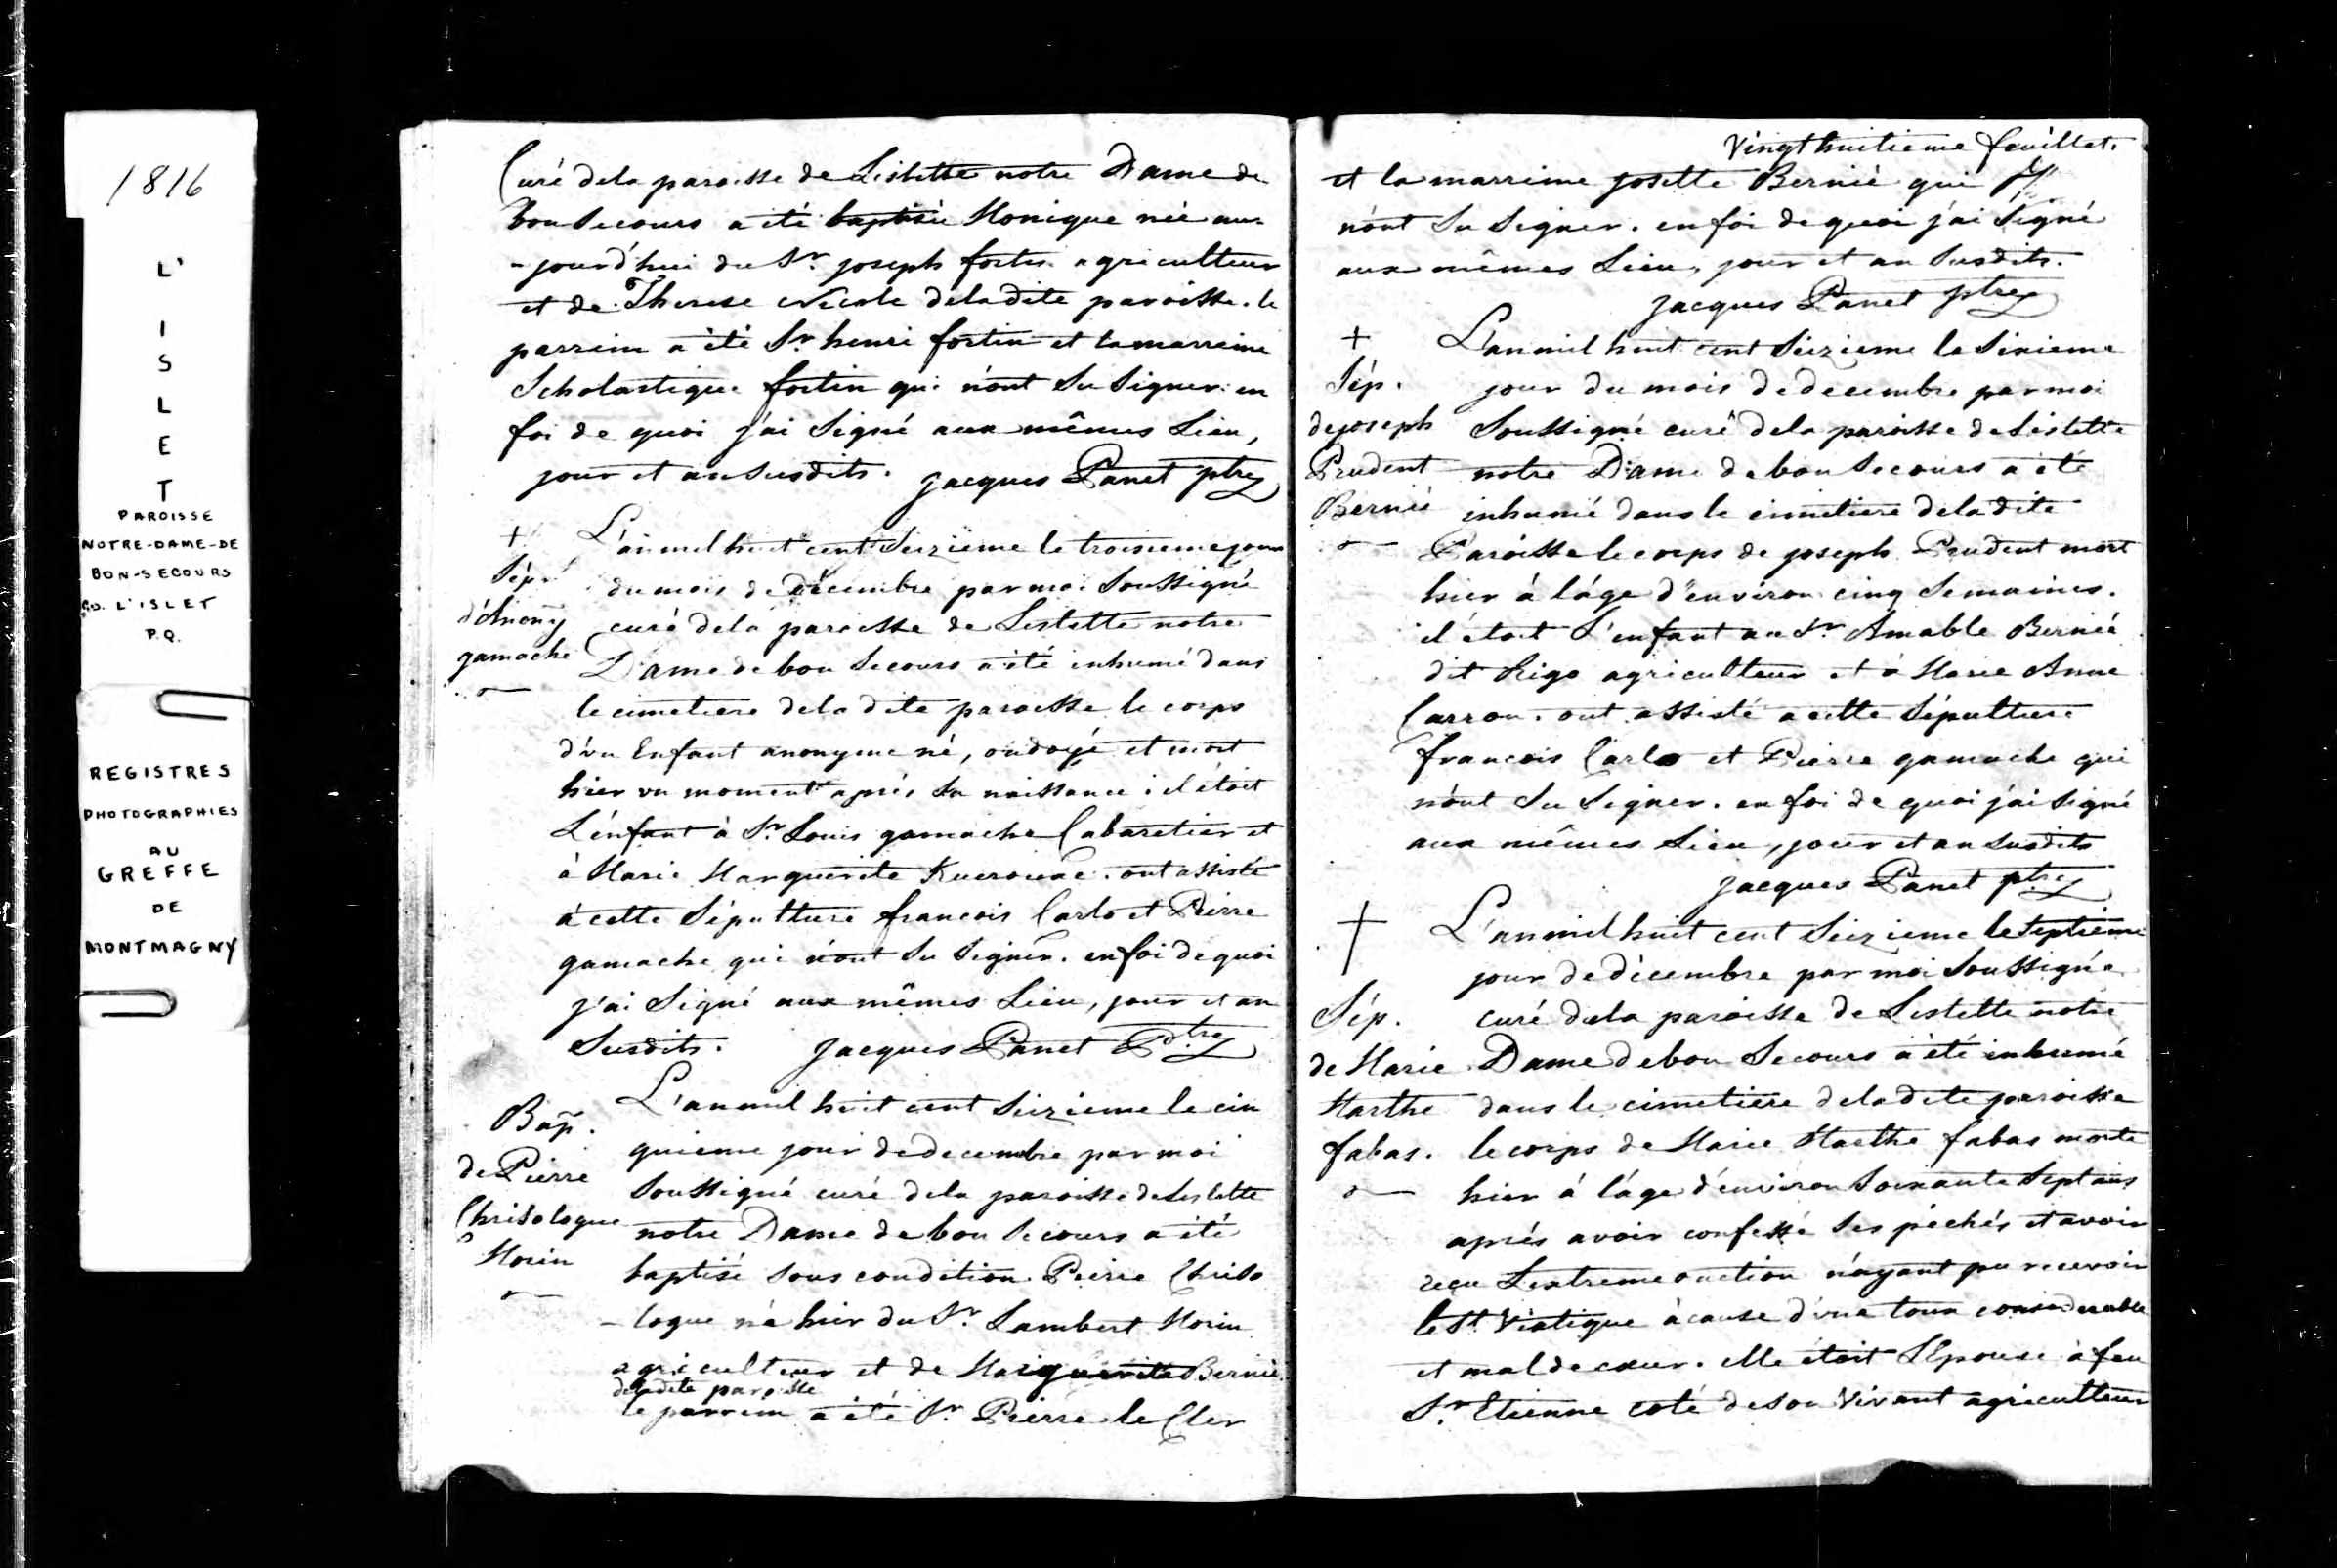 1816
L'
I
S
L
E
T
PAROISSE
NOTRE-DAME-DE
BON-SECOURS
CO. L'ISLET
P.Q.
REGISTRES
PHOTOGRAPHIES
AU
GREFFE
DE
MONTMAGNY
Curé dela paroisse de Lislette notre Dame de
bon Secours a été baptisée Monique née au-
-jourd'hui du Sr. joseph fortin agriculteur
et de Therese Nicole deladite paroisse. le
parrein a été Sr. henri fortin et lamarreine
Scholastique fortin qui n'ont Su Signer. en
foi de quoi j'ai Signé aux mêmes Lieu,
jour et an Susdits. jacques Panet ptre
+
Sép.
d'Anony
gamache
L'an mil huit cent Seizieme le troisieme jour
du mois de Décembre par moi Soussigné
curé dela paroisse de Leslette notre
Dame de bon Secours a été inhumé dans
le cimetiere deladite paroisse le corps
d'un Enfant anonyme né, ondoyé et mort
hier un moment aprés Sa naissance: il étoit
L'enfant à Sr. Louis gamache Cabaretier et
à Marie Marguerite Kuerouac. ont assisté
à cette Sépulture francois Carlo et Pierre
gamache qui n'ont Su Signer. en foi de quoi
j'ai Signé aux mêmes Lieu, jour et an
Susdits. Jacques Panet Ptre
Bap.
de Pierre
Chrisologue
Morin
L'an mil huit cent Seizieme le cin
quieme jour de decembre par moi
Soussigné curé dela paroisse de Leslette
notre Dame de bon Secours a été
baptisé Sous condition Pierre Chriso
-logue né hier du Sr. Lambert Morin
agriculteur et de Marguerite Bernié.
deladite paroisse
le parrein a été Sr. Pierre le Cler
Vingt huitieme feuillet.
et la marreine josette Bernié qui
n'ont Su Signer. en foi de quoi j'ai Signé
aux mêmes Lieu, jour et an Susdits.
jacques Panet ptre
+
Sép.
de joseph
Prudent
Bernié
L'an mil huit cent Seizieme le Sixieme
jour du mois de decembre par moi
Soussigné curé dela paroisse de Lislette
notre Dame de bon Secours a été
inhumé dans le cimetiere deladite
Paroisse le corps de joseph Prudent mort
hier à l'âge d'environ cinq Semaines.
il étoit L'enfant au Sr. Amable Bernié
dit Rigo agriculteur et à Marie Anne
Carron. ont assisté a cette Sépulture
francois Carlo et Pierre gamache qui
n'ont Su Signer. en foi de quoi j'ai Signé
aux mêmes Lieu, jour et an Susdits
jacques Panet ptre
+
Sép.
de Marie
Marthe
fabas.
L'an mil huit cent Seizieme le Septieme
jour de décembre par moi Soussigné
curé dela paroisse de Leslette notre
Dame de bon Secours a été inhumé
dans le cimetiere deladite paroisse
le corps de Marie Marthe fabas morte
hier à l'âge d'environ Soixante Sept ans
aprés avoir confessé Ses péchés et avoir
reçu L'extreme onction n'ayant pu recevoir
le St Viatique à cause d'une toux considerable
et mal de cœur. elle étoit L'Epouse à feu
Sr. Etienne coté de Son Vivant agriculteur